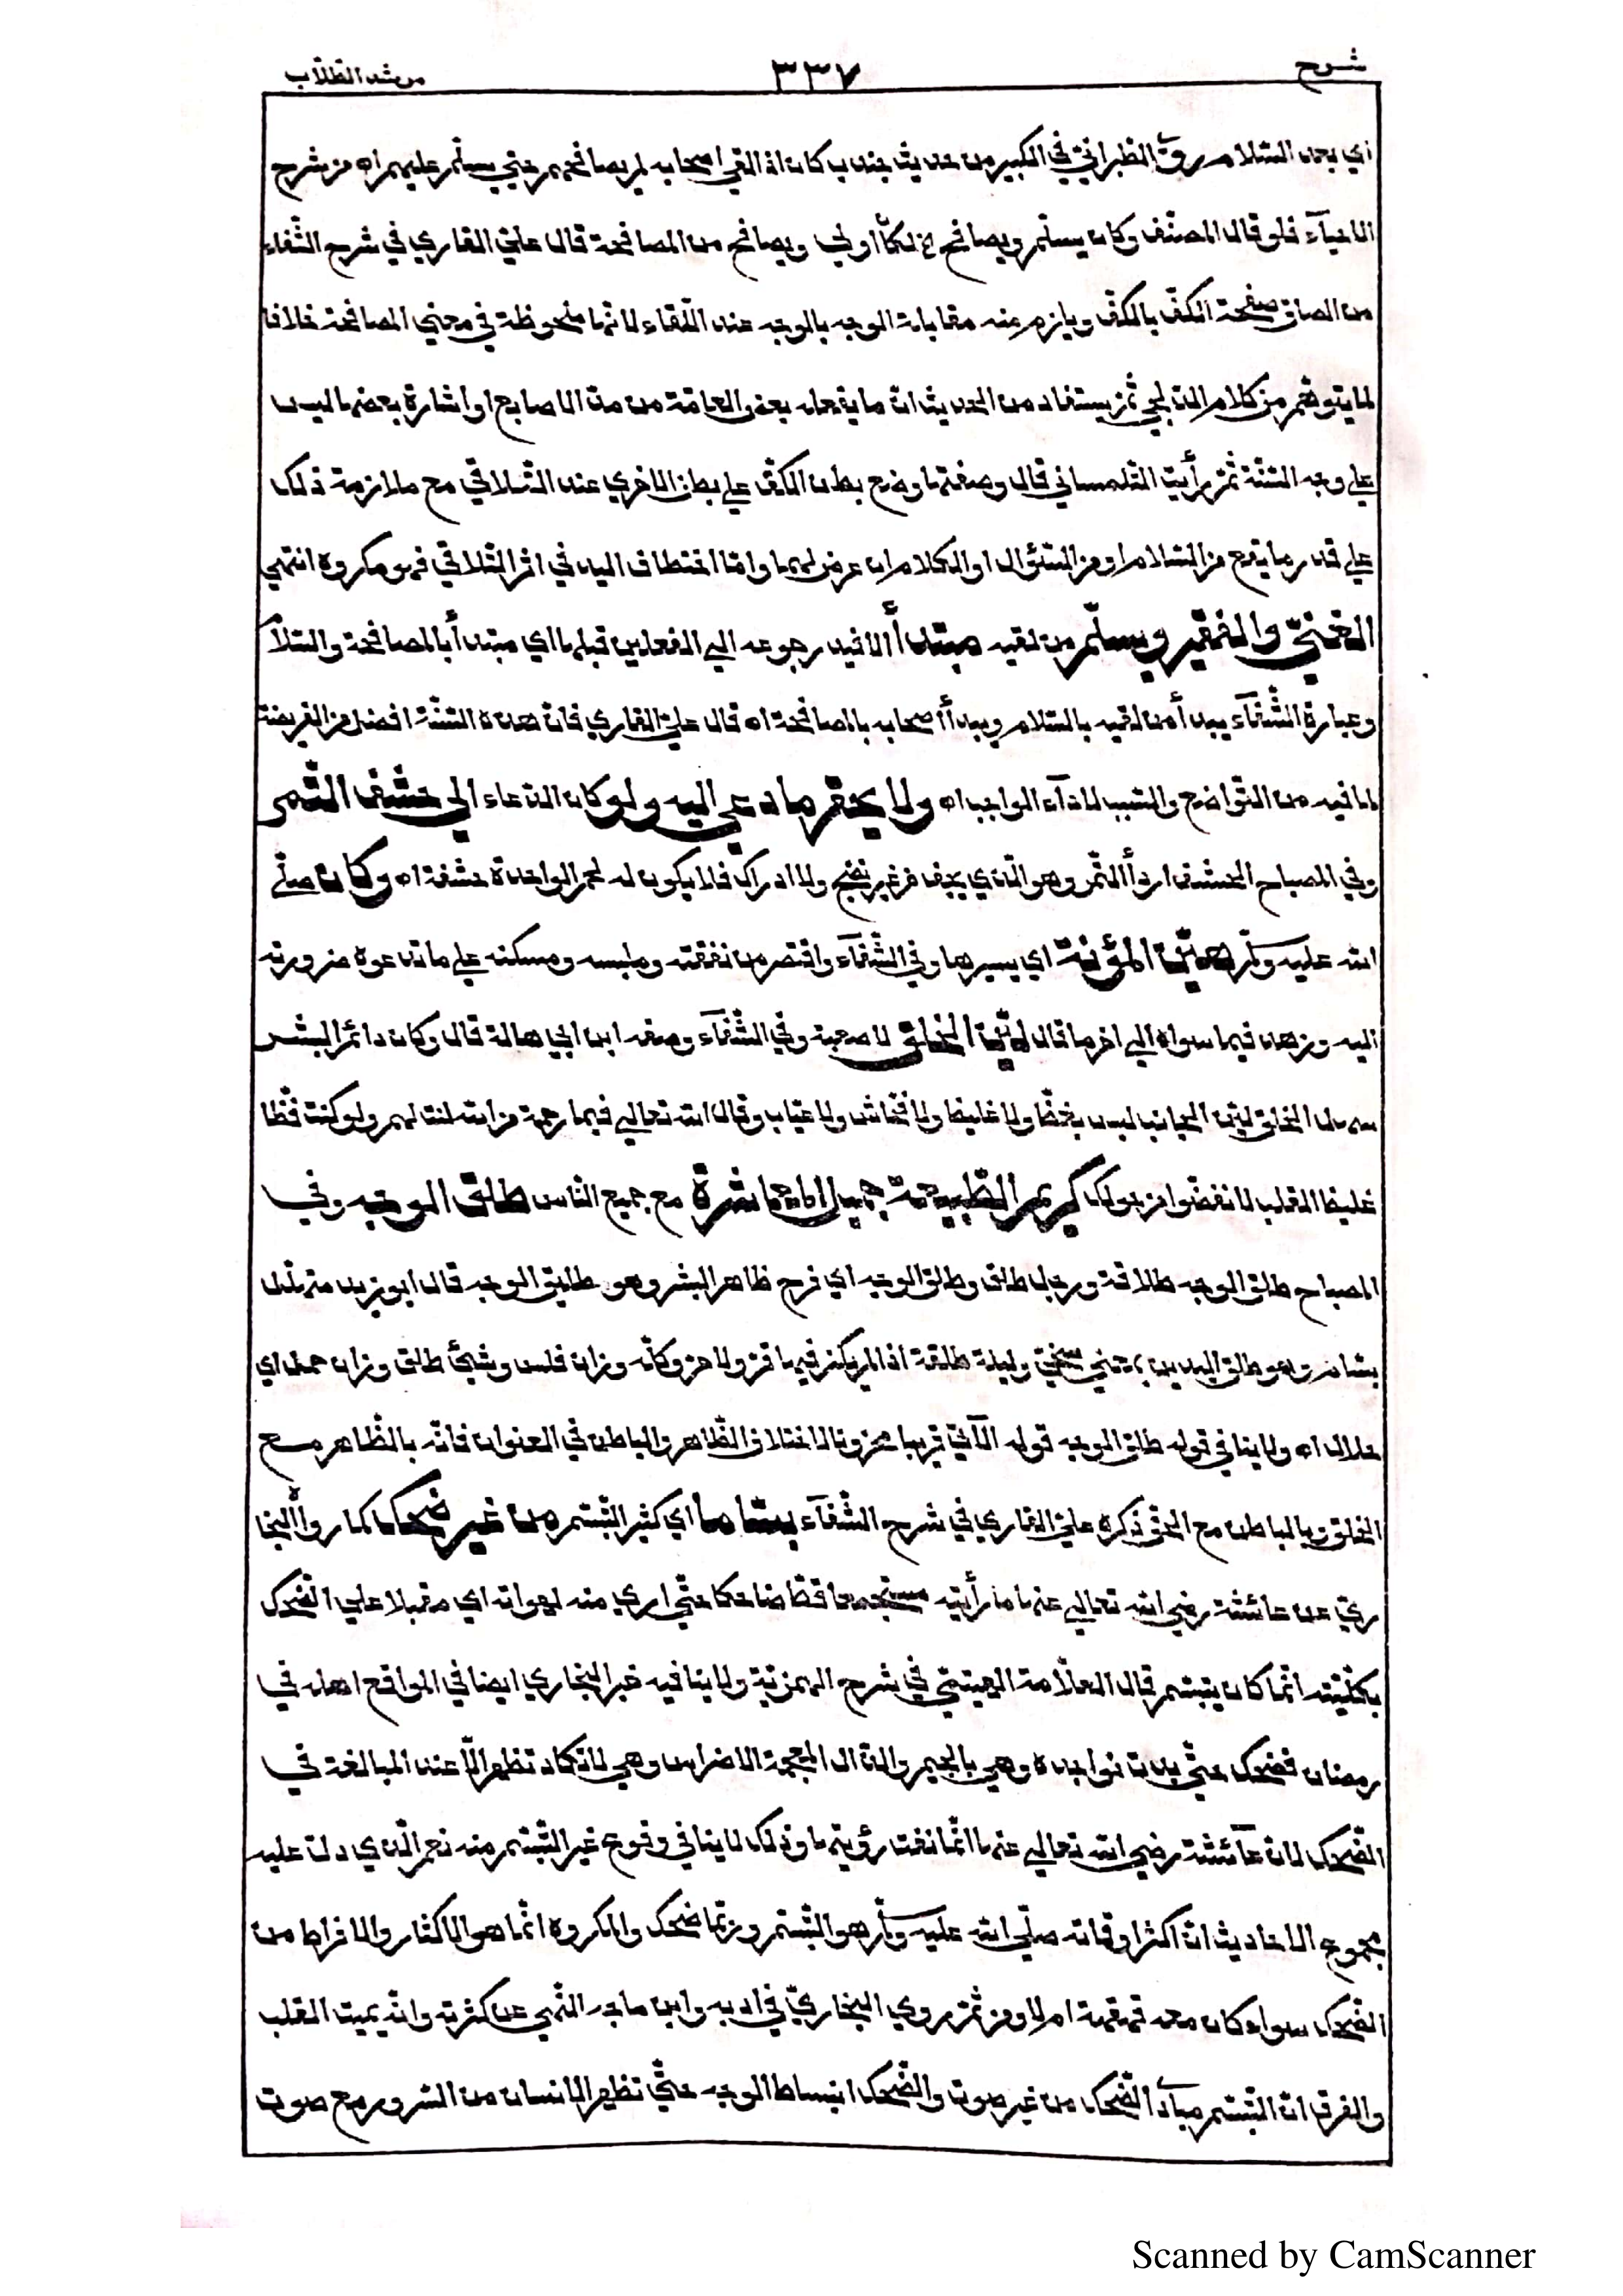 شرح
٣٣٧
مرشد الطلّاب
اي بعد السّلام روى الطبرانيّ في الكبير من حديث جندب كان اذا لقي اصحابه لم يصافحهم حتي يسلّم عليهم اه من شرح
الاحيآء فلو قال المصنّف وكان يسلّم ويصافح لكان اولي ويصافح من المصافحة قال عليّ القاري في شرح الشّفاء
من الصاق صفحة الكفّ بالكفّ ويلزم منه مقابلة الوجه بالوجه عند اللّقاء لانّها ملحوظة في معني المصافحة خلافا
لما يتوهّم من كلام الدلجي ثمّ يستفاد من الحديث انّ ما يفعله بعض العامّة من مدّ الاصابع او اشارة بعضها ليس
علي وجه السّنّة ثمّ رأيت التّلمساني قال وصفتها وضع بطن الكفّ علي بطن الاخري عند التّلاقي مع ملازمة ذلك
علي قدر ما يقع من السّلام او من السّئوال او الكلام ان عرض لهما وامّا اختطاف اليد في اثر التّلاقي فهو مكروه انتهي
الغنيّ والفقير ويسلّم من لقيه مبتدأ الافيد رجوعه الي الفعلين قبله اي مبتدأ بالمصافحة والسّلام
وعبارة الشّفآء يبدأ من لقيه بالسّلام ويبدأ اصحابه بالمصافحة اه قال عليّ القاري فانّ هذه السّنّة افضل من الفريضة
لما فيه من التّواضع والتسبب لادآء الواجب اه ولا يحقر ما دعي اليه ولو كان الدعاء الي حشف التّمر
وفي المصباح الحشف اردأ التّمر وهو الّذي يجف من غير نضج ولا ادراك فلا يكون له لحم الواحدة حشفة اه وكان صلّي
الله عليه وسلّم هيّن المؤنة اي يسيرها وفي الشّفآء واقتصر من نفقته وملبسه ومسكنه علي ما تدعوه ضرورته
اليه وزهد فيما سواه الي اخر ما قال ليّن الخلق لا صعبه وفي الشّفآء وصفه ابن ابي هالة قال وكان دائم البشر
سهل الخلق ليّن الجانب ليس بفظّ ولا غليظ ولا فحّاش ولا عيّاب وقال الله تعالي فبما رحمة من الله لنت لهم ولو كنت فظّا
غليظ القلب لانفضّوا من حولك كريم الطّبيعة جميل المعاشرة مع جميع الناس طلق الوجه وفي
المصباح طلق الوجه طلاقة ورجل طلق وطلق الوجه اي فرح ظاهر البشر وهو طليق الوجه قال ابو زيد متهلّل
بسّام وهو طلق اليدين بمعني سخيّ وليلة طلقة اذا لم يكن فيها قرّ ولا حرّ وكلّه وزان فلس وشيئ طلق وزان حمل اي
حلال اه ولا ينافي قوله طلق الوجه قوله الآتي قريبا محزونا لاختلاف الظّاهر والباطن في العنوان فانّه بالظّاهر مع
الخلق وبالباطن مع الحق ذكره عليّ القاري في شرح الشّفآء بسّاما اي كثير التّبسّم من غير ضحك كما رواه البخا
ريّ عن عائشة رضي الله تعالي عنها ما رأيته مستجمعا قطّ ضاحكا حتّي اري منه لهواته اي مقبلا علي الضّحك
بكلّيّته انّما كان يتبسّم قال العلّامة الهيتمي في شرح الهمزيّة ولا ينافيه خبر البخاري ايضا في المواقع اهله في
رمضان فضحك حتّي بدت نواجذه وهي بالجيم والذال المعجمة الاضراس وهي لا تكاد تظهر الّا عند المبالغة في
الضّحك لانّ عآئشة رضي الله تعالي عنها انّما نفت رؤيتها وذلك لا ينافي وقوع غير التّبسّم منه نعم الّذي دلت عليه
مجموع الاحاديث انّ اكثر اوقاته صلّي الله عليه وسلّم هو التّبسّم وربّما ضحك والمكروه انّما هو الاكثار والافراط من
الضّحك سواء كان معه قهقهة ام لا ومن ثمّ روي البخاريّ في ادبه وابن ماجه النّهي عن كثرته وانّه يميت القلب
والفرق انّ التّبسّم مبادأ الضّحك من غير صوت والضّحك انبساط الوجه حتّي تظهر الاسنان من السّرور مع صوت
Scanned by CamScanner